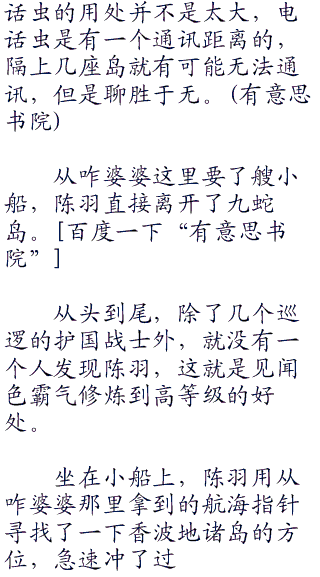 话虫的用处并不是太大，电
话虫是有一个通讯距离的，
隔上几座岛就有可能无法通
讯，但是聊胜于无。(有意思
书院)
从咋婆婆这里要了艘小
船，陈羽直接离开了九蛇
岛。[百度一下“有意思书
院”]
从头到尾，除了几个巡
逻的护国战士外，就没有一
个人发现陈羽，这就是见闻
色霸气修炼到高等级的好
处。
坐在小船上，陈羽用从
咋婆婆那里拿到的航海指针
寻找了一下香波地诸岛的方
位，急速冲了过